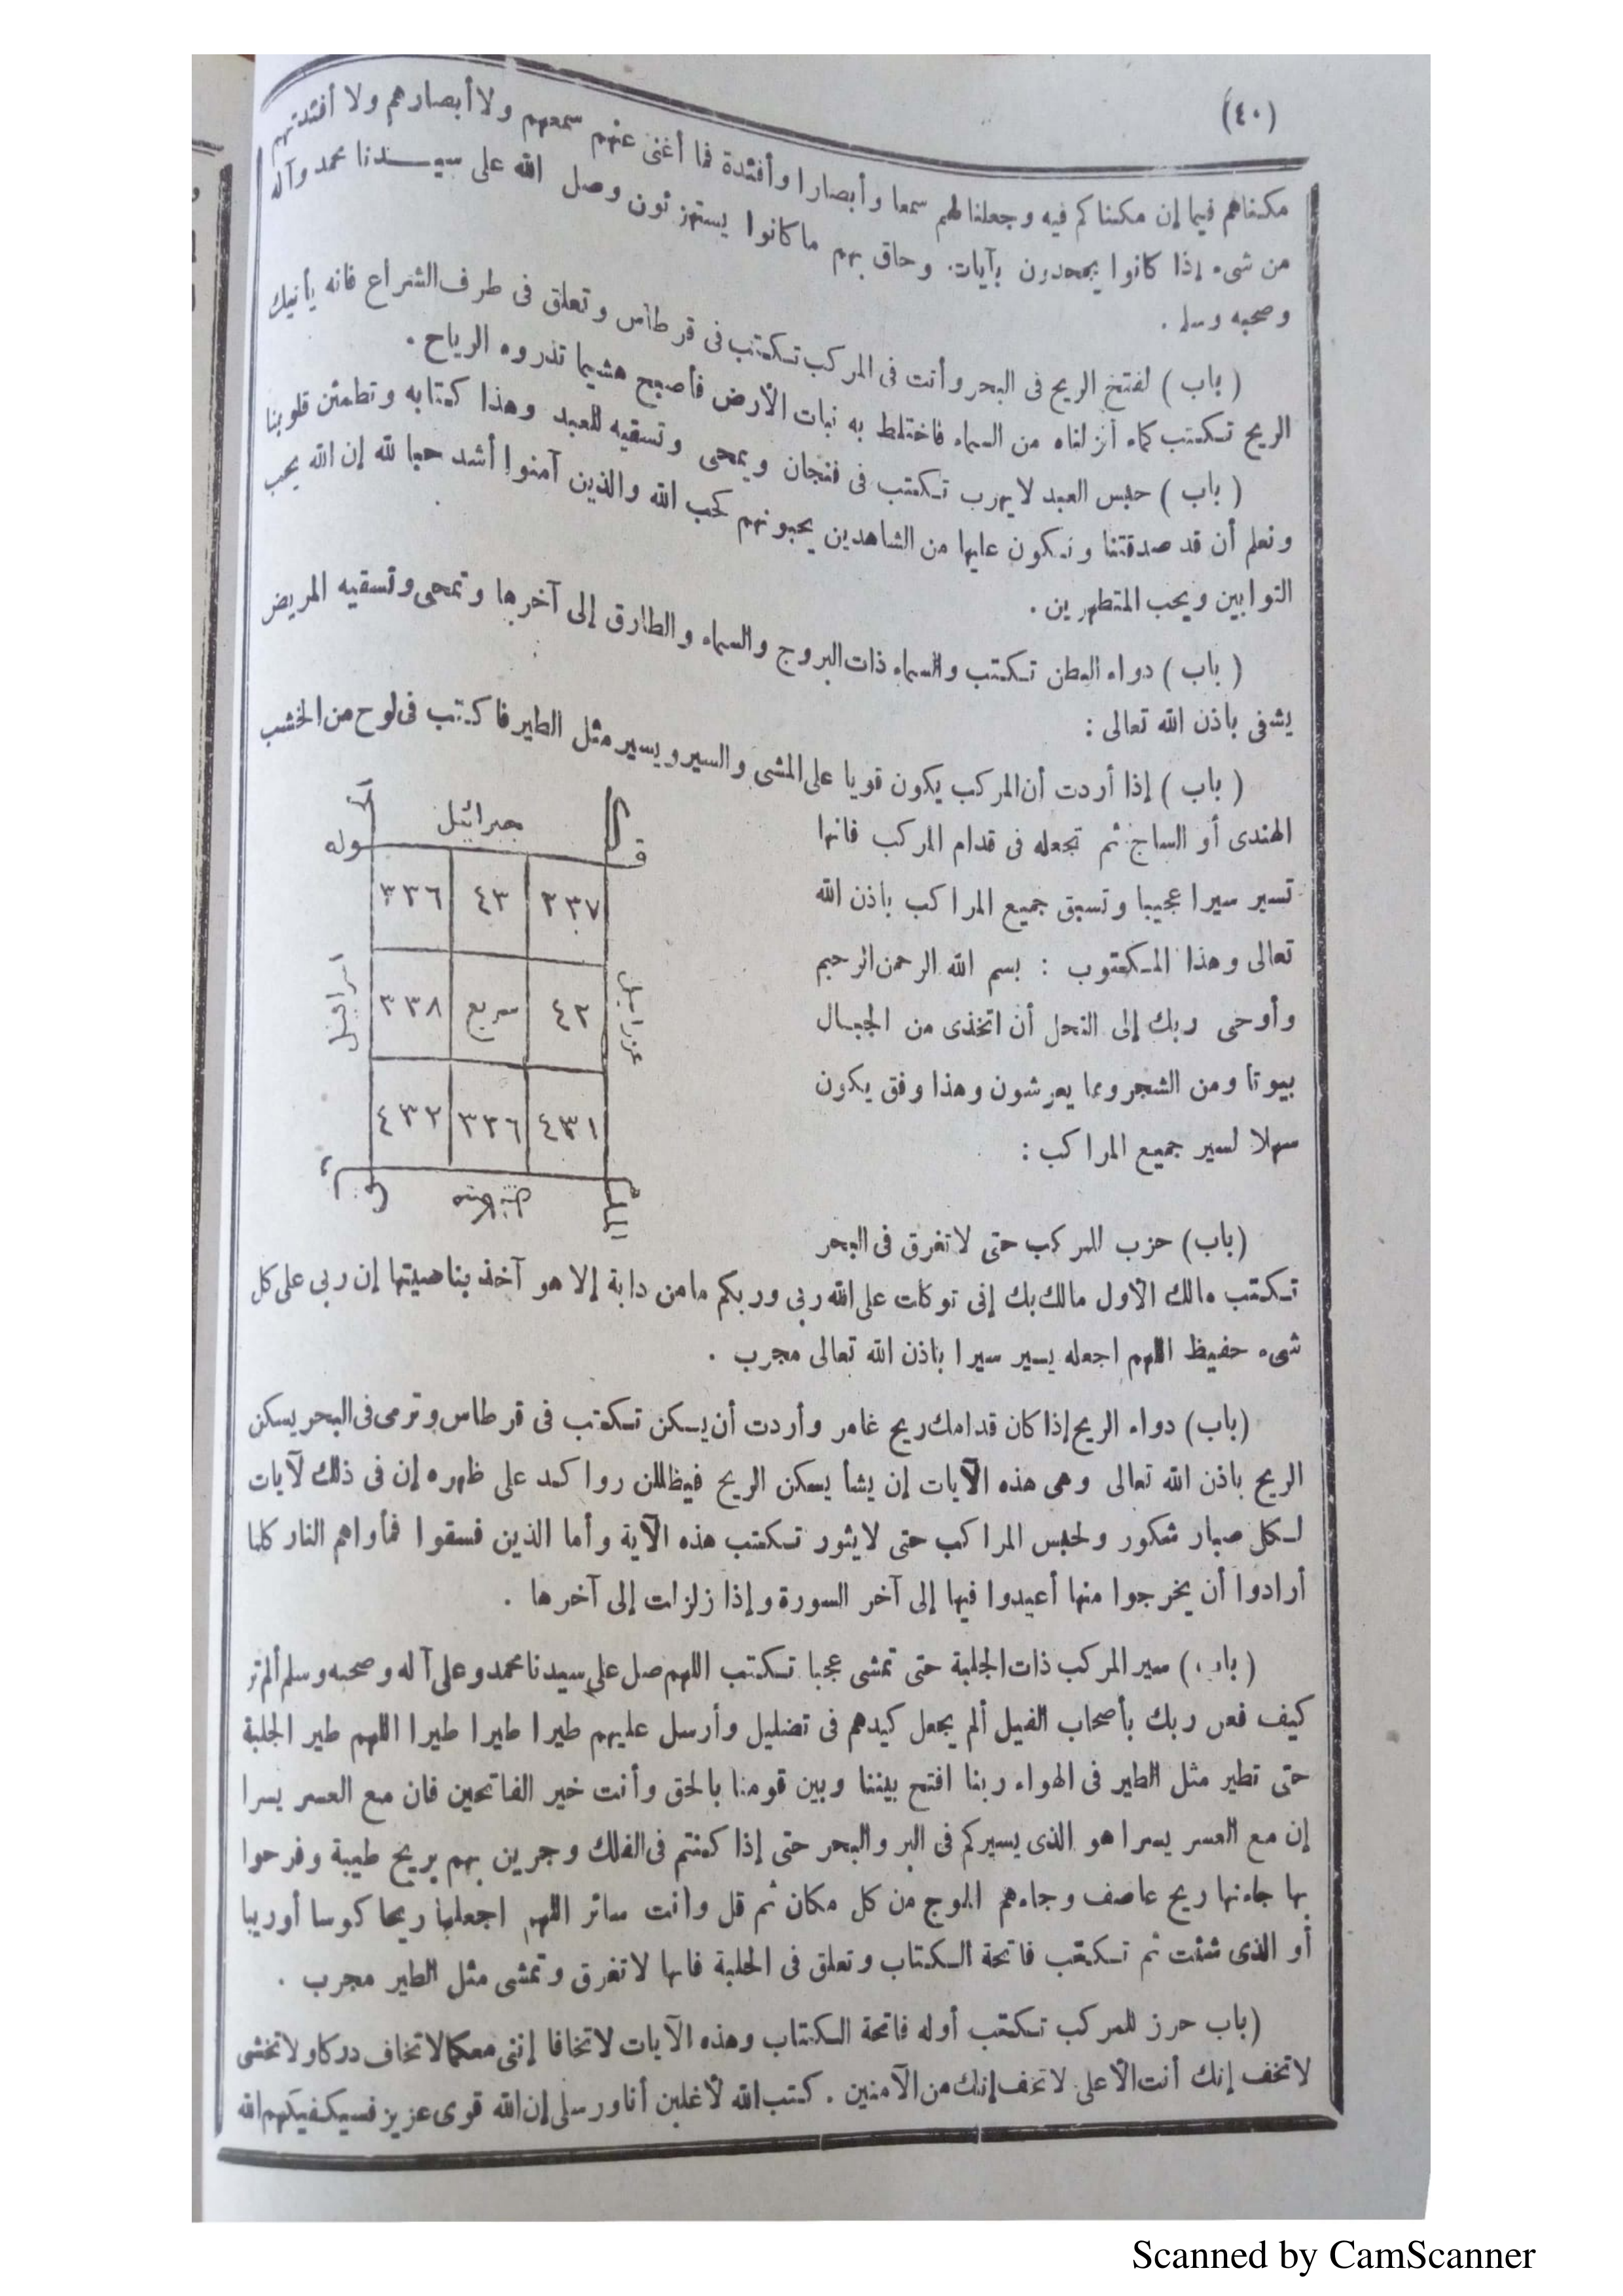 (٤٠)
مكناهم فيما إن مكناكم فيه وجعلنا لهم سمعا وأبصارا وأفئدة فما أغنى عنهم سمعهم ولا أبصارهم ولا أفئدتهم
من شىء إذا كانوا يجحدون بآيات. وحاق بهم ما كانوا يستهزئون وصل الله على سيدنا محمد وآله
وصحبه وسلم .
( باب ) لفتح الريح فى البحر وأنت فى المركب تكتب فى قرطاس وتعلق فى طرف الشراع فانه يأتيك
الريح تكتب كماء أنزلناه من السماء فاختلط به نبات الأرض فأصبح هشيما تذروه الرياح .
( باب ) حبس العبد لايهرب تكتب فى فنجان ويمحى وتسقيه للعبد وهذا كتابه وتطمئن قلوبنا
ونعلم أن قد صدقتنا ونكون عليها من الشاهدين يحبونهم كحب الله والذين آمنوا أشد حبا لله إن الله يحب
التوابين ويحب المتطهرين .
( باب ) دواء البطن تكتب والسماء ذات البروج والسماء والطارق إلى آخرها وتمحى وتسقيه المريض
يشفى باذن الله تعالى :
( باب ) إذا أردت أن المركب يكون قويا على المشى والسير ويسير مثل الطير فاكتب فى لوح من الخشب
الهندى أو الساج ثم تجعله فى قدام المركب فانها
تسير سيرا عجيبا وتسبق جميع المراكب باذن الله
تعالى وهذا المكتوب : بسم الله الرحمن الرحيم
وأوحى ربك إلى النحل أن اتخذى من الجبال
بيوتا ومن الشجر ومما يعرشون وهذا وفق يكون
سهلا لسير جميع المراكب :
جبرائيل
وله
٢٣٧ ٤٣ ٣٣٦
عزرائيل
٤٢ سريع ٣٣٨
اسرافيل
٤٣١ ٣٢٦ ٤٣٢
(باب) حزب للمركب حتى لاتغرق فى البحر
تكتب مالك الأول مالك بك إنى توكلت على الله ربى وربكم مامن دابة إلا هو آخذ بناصيتها إن ربى على كل
شىء حفيظ اللهم اجعله يسير سيرا باذن الله تعالى مجرب .
(باب) دواء الريح إذا كان قدامك ريح غامر وأردت أن يسكن تكتب فى قرطاس وترمى فى البحر يسكن
الريح باذن الله تعالى وهى هذه الآيات إن يشأ يسكن الريح فيظللن رواكد على ظهره إن فى ذلك لآيات
لكل صبار شكور ولحبس المراكب حتى لايثور تكتب هذه الآية وأما الذين فسقوا فمأواهم النار كلما
أرادوا أن يخرجوا منها أعيدوا فيها إلى آخر السورة وإذا زلزلت إلى آخرها .
(باب) سير المركب ذات الجلبة حتى تمشى عجبا تكتب اللهم صل على سيدنا محمد وعلى آله وصحبه وسلم ألم تر
كيف فعل ربك بأصحاب الفيل ألم يجعل كيدهم فى تضليل وأرسل عليهم طيرا طيرا طيرا اللهم طير الجلبة
حتى تطير مثل الطير فى الهواء ربنا افتح بيننا وبين قومنا بالحق وأنت خير الفاتحين فان مع العسر يسرا
إن مع العسر يسرا هو الذى يسيركم فى البر والبحر حتى إذا كنتم فى الفلك وجرين بهم بريح طيبة وفرحوا
بها جاءتها ريح عاصف وجاءهم الموج من كل مكان ثم قل وأنت سائر اللهم اجعلها ريحا كوسا أو ريبا
أو الذى شئت ثم تكتب فاتحة الكتاب وتعلق فى الجلبة فانها لاتغرق وتمشى مثل الطير مجرب .
(باب حرز للمركب تكتب أوله فاتحة الكتاب وهذه الآيات لاتخافا إننى معكما لاتخاف دركا ولاتخشى
لاتخف إنك أنت الأعلى لاتخف إنك من الآمنين . كتب الله لأغلبن أنا ورسلى إن الله قوى عزيز فسيكفيكهم الله
Scanned by CamScanner